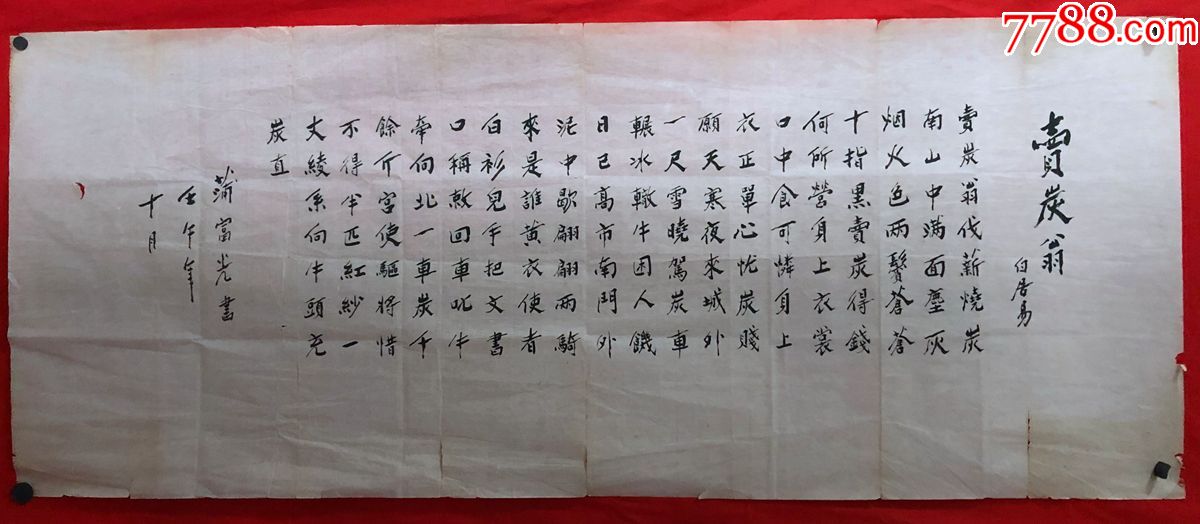 賣炭翁
白居易
賣炭翁伐薪燒炭
南山中满面塵灰
烟火色两鬢蒼蒼
十指黑賣炭得錢
何所營身上衣裳
口中食可憐身上
衣正單心忧炭賤
願天寒夜來城外
一尺雪曉駕炭車
輾冰轍牛困人饑
日已高市南門外
泥中歇翩翩两騎
來是誰黄衣使者
白衫兒手把文書
口稱敕回車叱牛
牵向北一車炭千
餘斤宫使驅將惜
不得半匹紅紗一
丈綾系向牛頭充
炭直
蒲富光書
壬午年
十月
7788.com